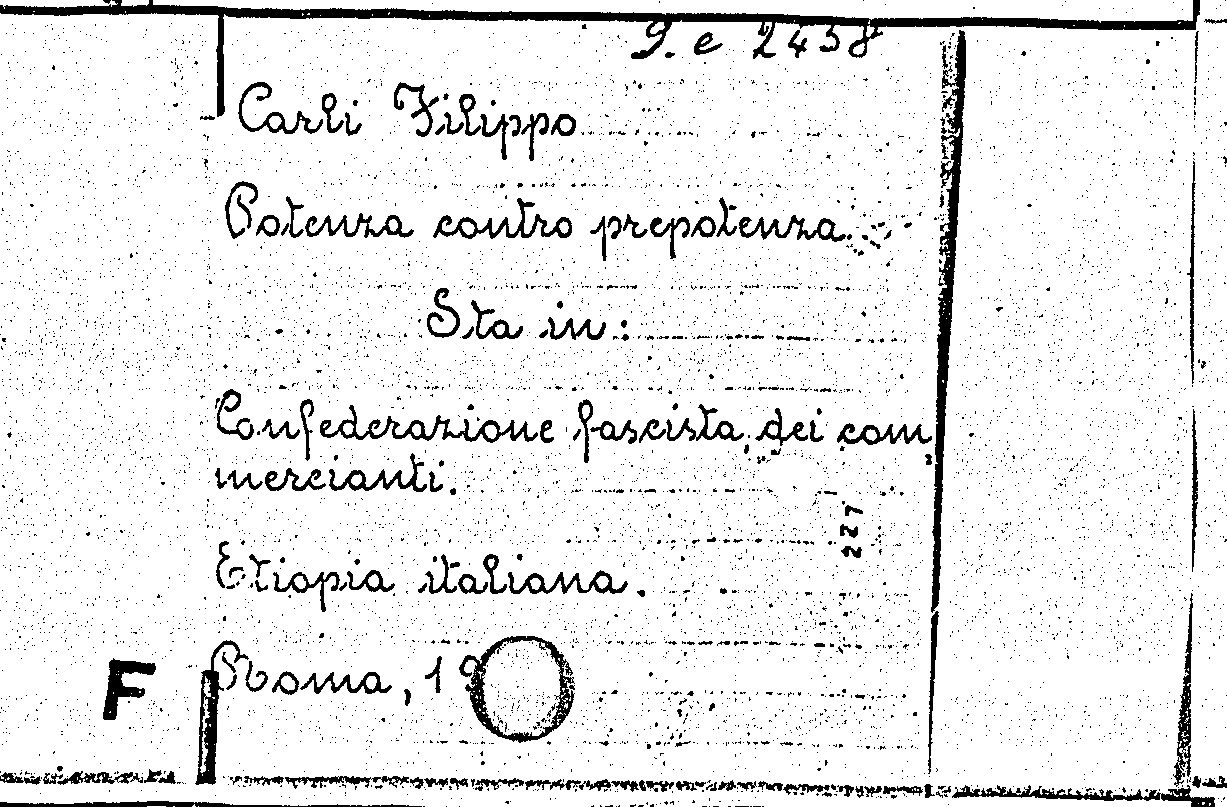 9. e 2458
Carli Filippo
Potenza contro prepotenza.
Sta in:
Confederazione fascista dei com
mercianti.
227
Etiopia italiana.
F
Roma, 19